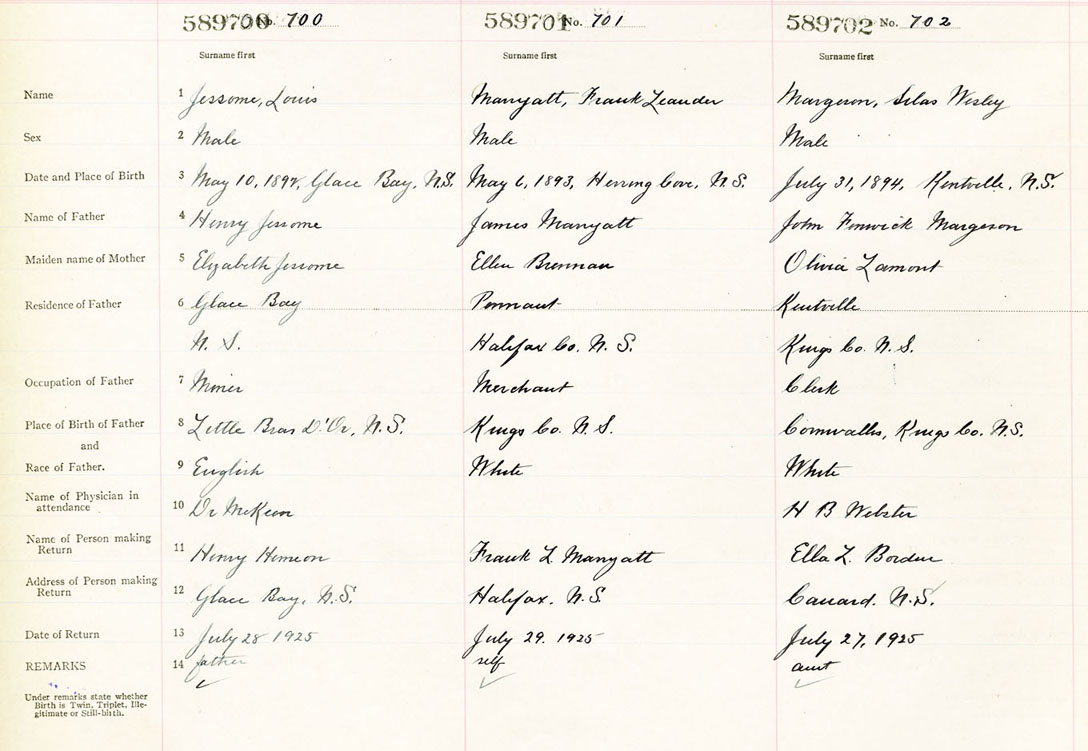 589700 No. 700 589701 No. 701 589702 No. 702
Surname first Surname first Surname first
Name 1 Jessome, Louis Marryatt, Frank Leander Margeson, Silas Wesley
Sex 2 Male Male Male
Date and Place of Birth 3 May 10, 1897, Glace Bay, N.S. May 6, 1893, Herring Cove, N.S. July 31, 1894, Kentville, N.S.
Name of Father 4 Henry Jessome James Marryatt John Fenwick Margeson
Maiden name of Mother 5 Elizabeth Jessome Ellen Brennan Olivia Lamont
Residence of Father 6 Glace Bay Pennant Kentville
N. S. Halifax Co. N. S. Kings Co. N. S.
Occupation of Father 7 Miner Merchant Clerk
Place of Birth of Father 8 Little Bras D'Or, N.S. Kings Co. N. S. Cornwallis, Kings Co. N.S.
and
Race of Father. 9 English White White
Name of Physician in
attendance 10 Dr McKeen H B Webster
Name of Person making
Return 11 Henry Frank L. Marryatt Ella L. Borden
Address of Person making
Return 12 Glace Bay, N.S. Halifax. N.S. Canard. N.S.
Date of Return 13 July 28 1925 July 29. 1925 July 27, 1925
REMARKS 14 father self aunt
Under remarks state whether
Birth is Twin, Triplet, Ille-
gitimate or Still-birth.